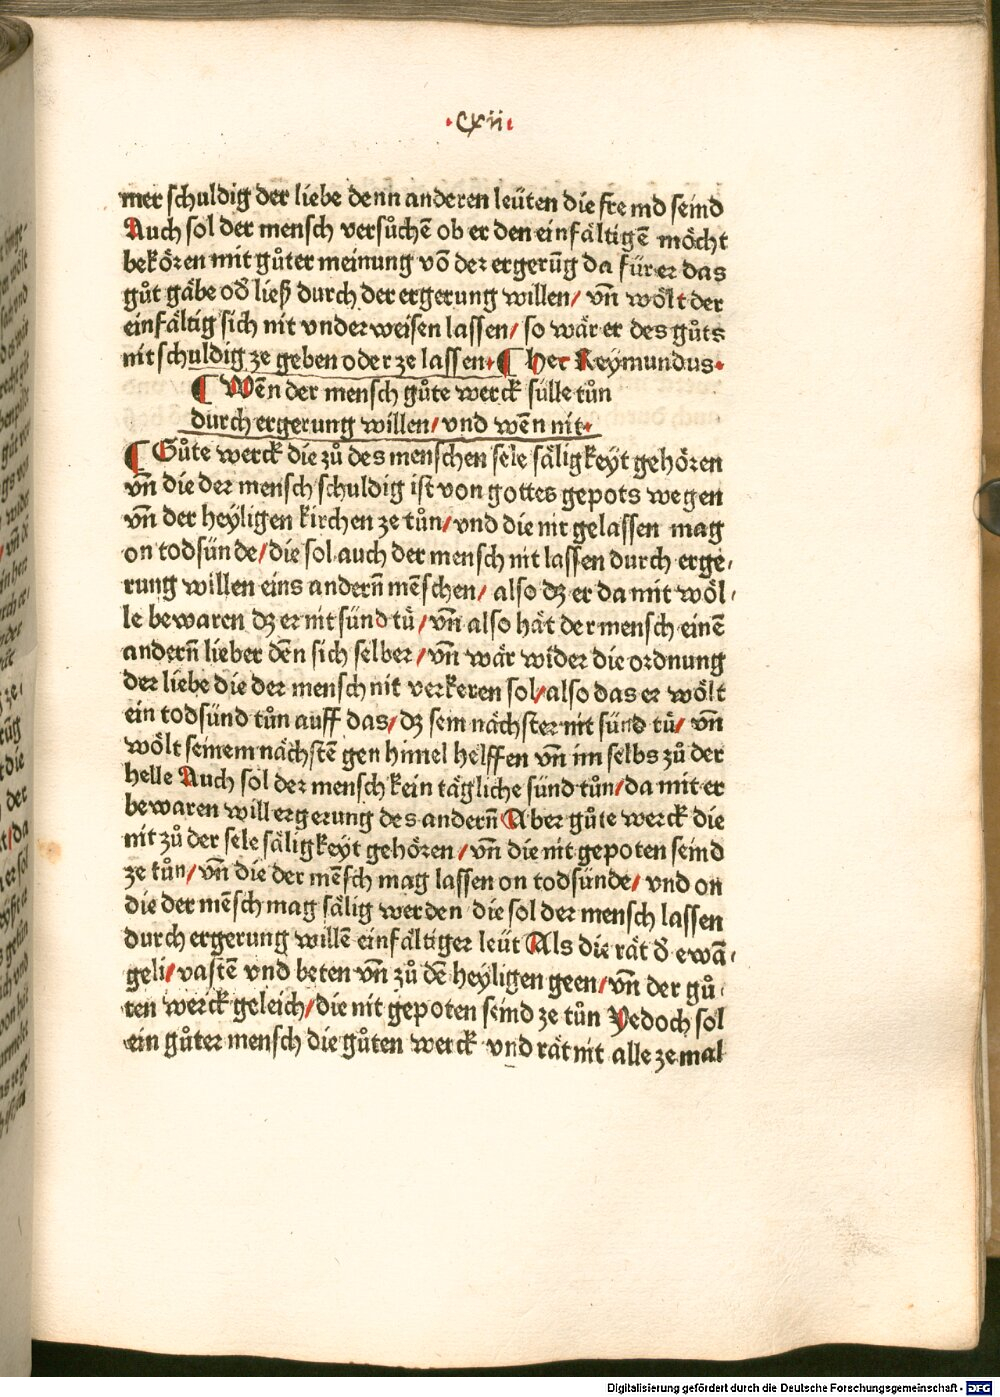 ·cxii·
mer schuldig der liebe denn anderen leüten die fremd seind
Auch sol der mensch versůchē ob er den einfåltigē möcht
bekören mit gůter meinung vō der ergerūg da für er das
gůt gåbe od̄ ließ durch der ergerung willen/ vn̄ wölt der
einfåltig sich nit vnderweisen lassen/ so wår er des gůts
nit schuldig ze geben oder ze lassen· ¶ her Reymundus·
¶ Wēn der mensch gůte werck sülle tůn
durch ergerung willen/ vnd wēn nit·
¶ Gůte werck die zů des menschen sele såligkeyt gehören
vn̄ die der mensch schuldig ist von gottes gepots wegen
vn̄ der heyligen kirchen ze tůn/ vnd die nit gelassen mag
on todsünde/ die sol auch der mensch nit lassen durch erge⸗
rung willen eins andern̄ mēschen/ also dz er da mit wöl⸗
le bewaren dz er nit sünd tů/ vn̄ also håt der mensch einē
andern̄ lieber dēn sich selber/ vn̄ wår wider die ordnung
der liebe die der mensch nit verkeren sol/ also das er wölt
ein todsünd tůn auff das/ dz sein nåchster nit sünd tů/ vn̄
wölt seinem nåchstē gen himel helffen vn̄ im selbs zů der
helle Auch sol der mensch kein tågliche sünd tůn/ da mit er
bewaren will ergerung des andern̄ Aber gůte werck die
nit zů der sele såligkeyt gehören/ vn̄ die nit gepoten seind
ze tůn/ vn̄ die der mēsch mag lassen on todsünde/ vnd on
die der mēsch mag sålig werden die sol der mensch lassen
durch ergerung willē einfåltiger leüt Als die råt d̄ ewā⸗
geli/ vastē vnd beten vn̄ zů dē heyligen geen/ vn̄ der gů⸗
ten werck geleich/ die nit gepoten seind ze tůn Yedoch sol
ein gůter mensch die gůten werck vnd råt nit alle ze mal
Digitalisierung gefördert durch die Deutsche Forschungsgemeinschaft - DFG